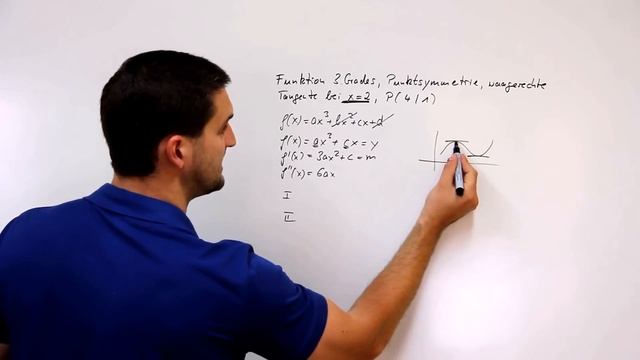 Funktion 3. Grades, Punktsymmetrie, waagerechte
Tangente bei x=2, P(4/1)
f(x)=ax³+bx²+cx+d
f(x)=ax³+cx=y
f'(x)=3ax²+c=m
f''(x)=6ax
I
II